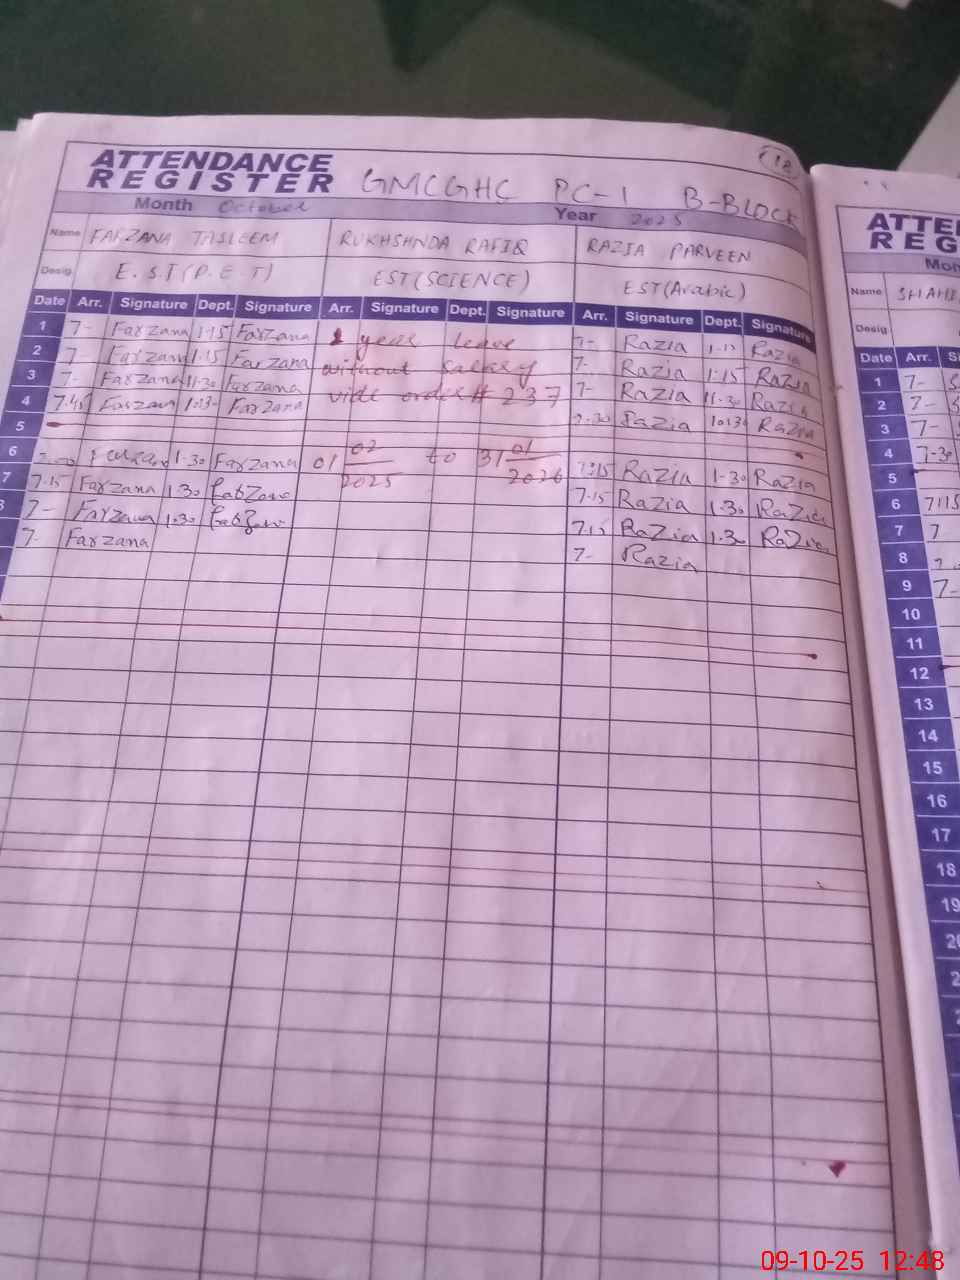 18
ATTENDANCE
REGISTER GMCGHC PC-1 B-BLOCK
Month October Year 2025
Name FARZANA TASLEEM RUKHSHNDA RAFIQ RAZIA PARVEEN
Desig E.S.T (P.E.T) EST (SCIENCE) EST (Arabic)
Date Arr. Signature Dept. Signature Arr. Signature Dept. Signature Arr. Signature Dept. Signature
1 7- Farzana 1-15 Farzana 1 year leave 7- Razia Razia
2 7- Farzana 1.15 Farzana without salary 7- Razia 1.15 Razia
3 7- Farzana 11-30 Farzana vide order # 237 7- Razia 11-30 Razia
4 7.45 Farzana Farzana Razia Razia
5
6 Farzana 1-30 Farzana 01 02 2025 to 31 01 2026 7:15 Razia 1-30 Razia
7 7.15 Farzana 1.30 Farzana 7.15 Razia 1.30 Razia
8 7- Farzana 1.30 Farzana 7.15 Razia 1.30 Razia
7- Farzana 7- Razia
ATTEN
REG
Mon
Name SHAHI
Desig
Date Arr. S
1 7-
2 7-
3 7-
4 7-30
5
6 7:15
7 7
8
9 7-
10
11
12
13
14
15
16
17
18
19
20
2
2
09-10-25 12:48